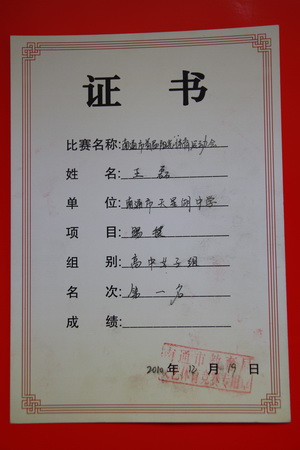 证 书
比赛名称:南通市首届阳光体育运动会
姓 名:王
单 位:南通市天星湖中学
项 目:踢毽
组 别:高中女子组
名 次:第一名
成 绩:
南通市教育局
2010 年 12 月 19 日